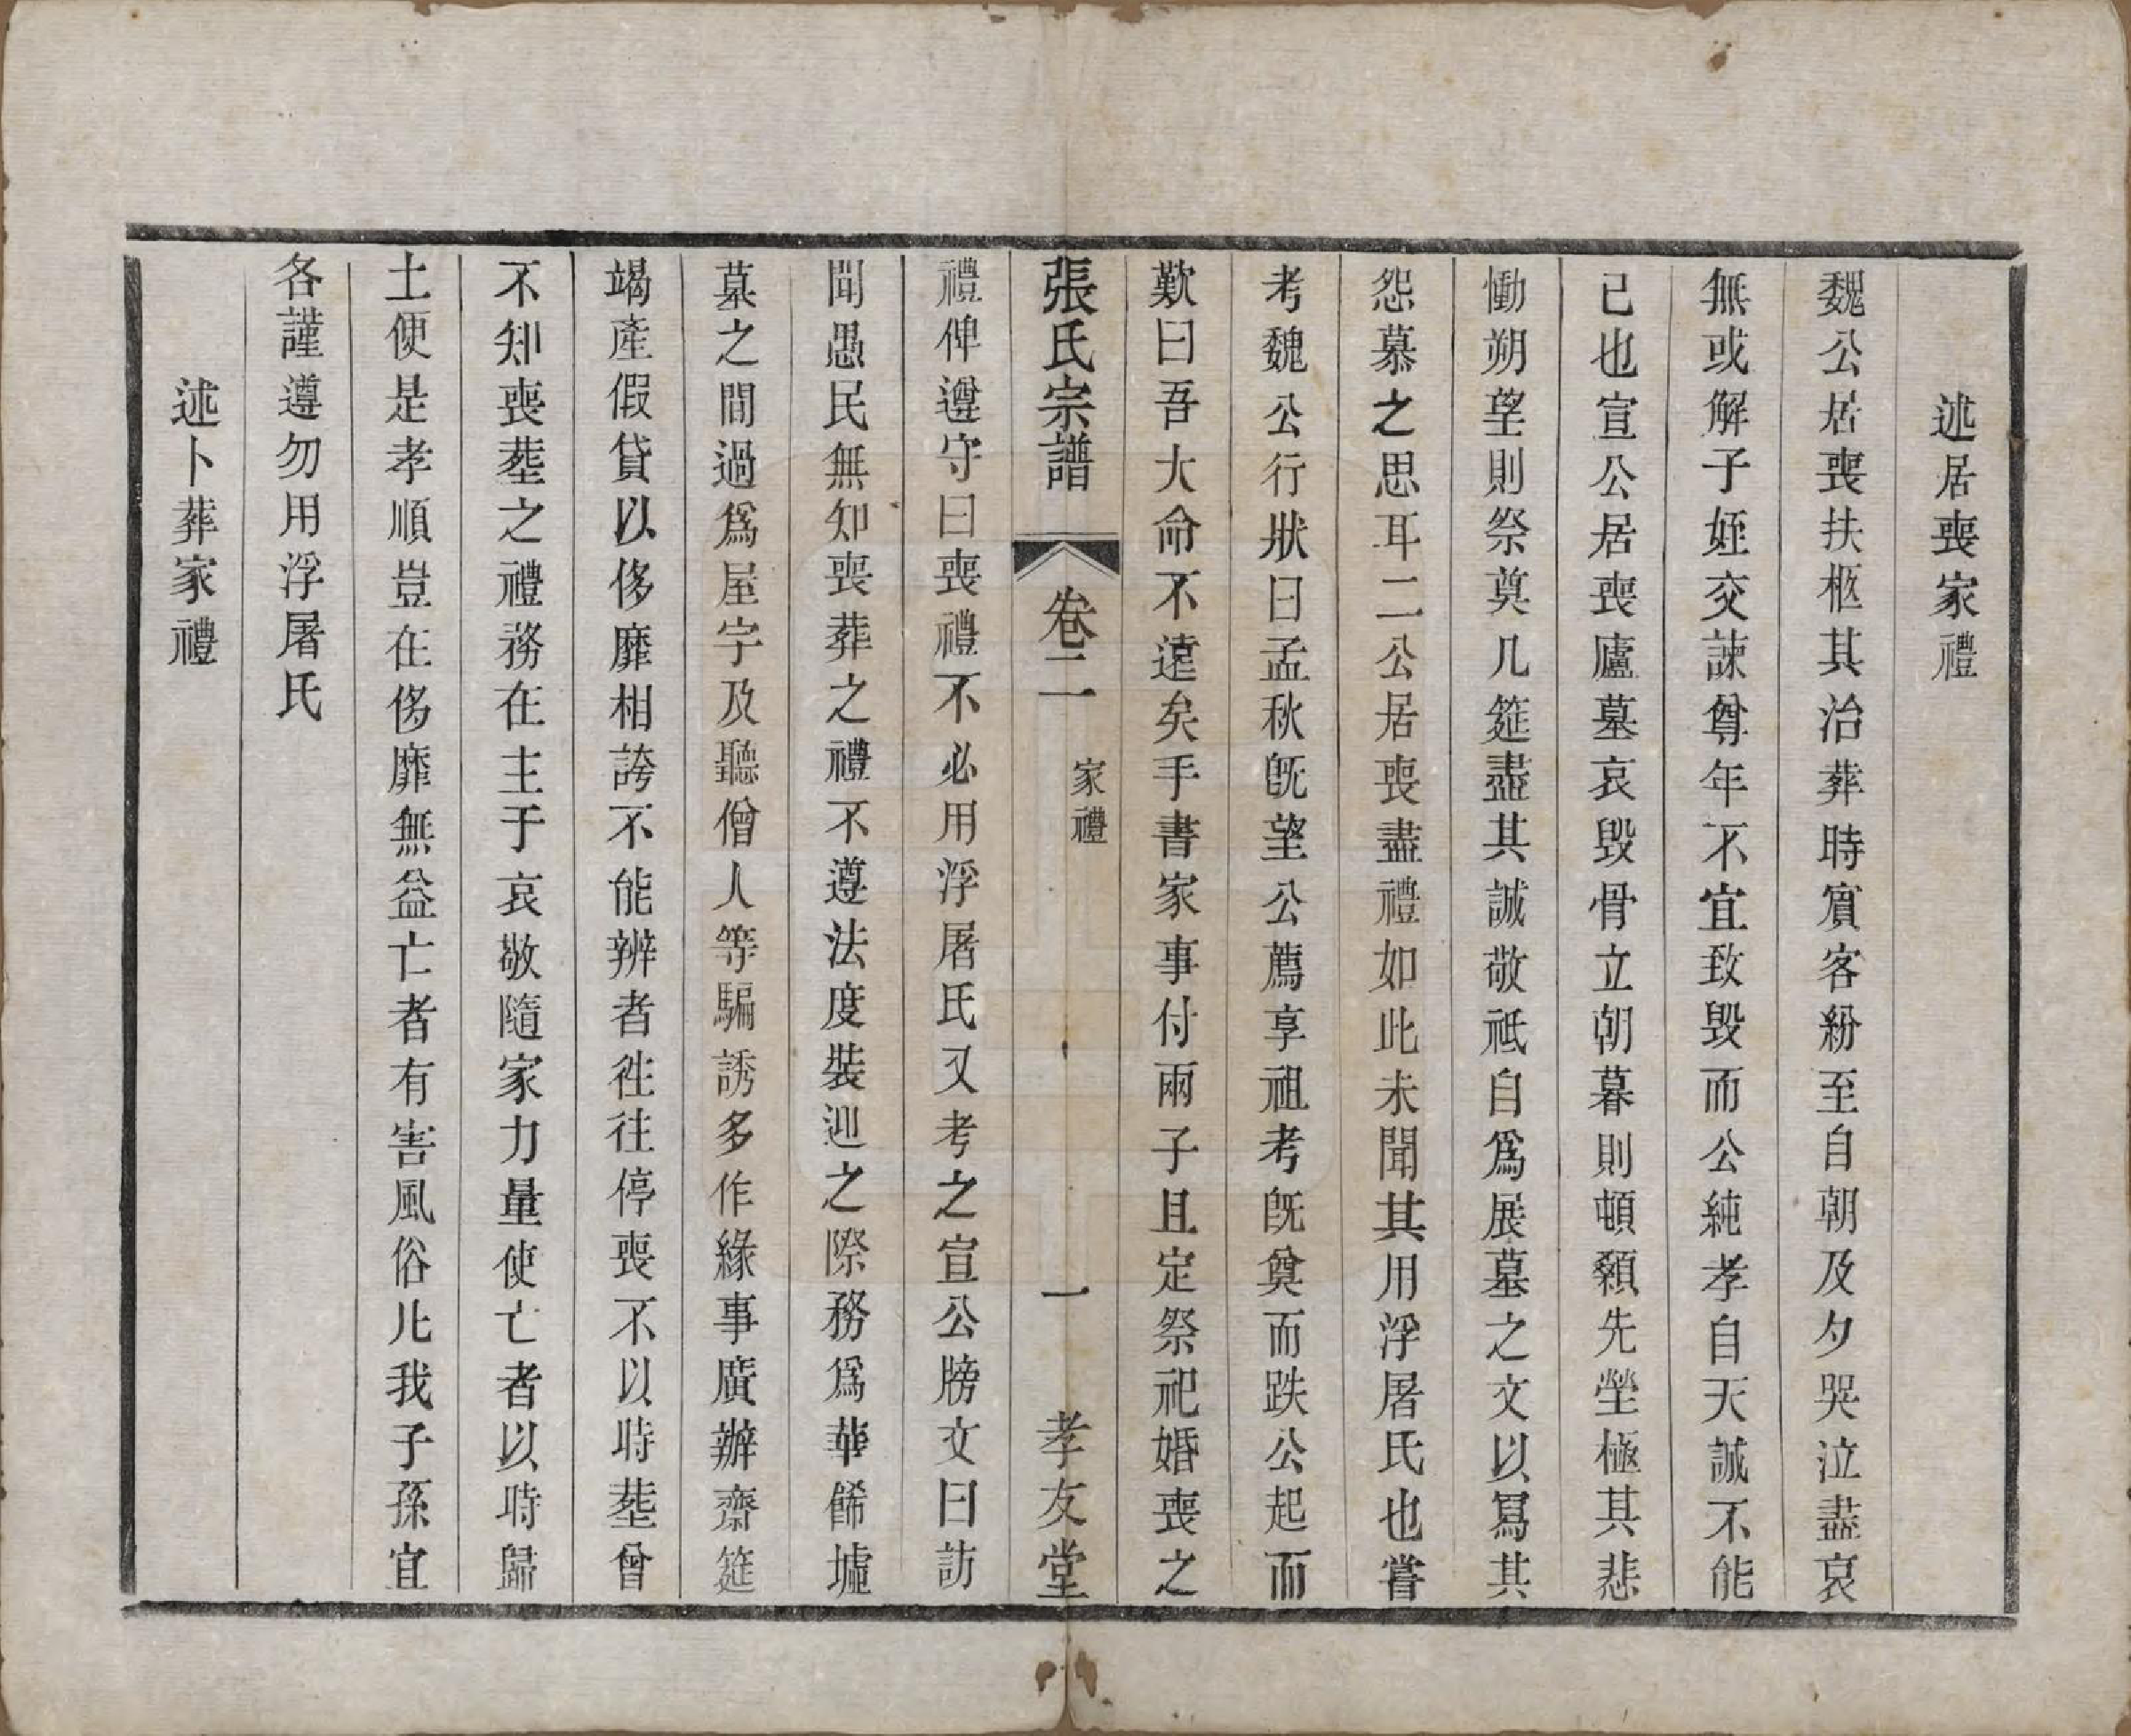 述居喪家禮
魏公居喪扶柩其治葬時賓客紛至自朝及夕哭泣盡哀
無或解子姪交諫尊年不宜致毁而公純孝自天誠不能
已也宣公居喪廬墓哀毁骨立朝暮則頓顙先塋極其悲
慟朔望則祭奠几筵盡其誠敬祗自爲展墓之文以冩其
怨慕之思耳二公居喪盡禮如此未聞其用浮屠氏也嘗
考魏公行狀曰孟秋旣望公薦享祖考旣奠而跌公起而
歎曰吾大命不遠矣手書家事付兩子且定祭祀婚喪之
張氏宗譜 卷二 家禮 一 孝友堂
禮俾遵守曰喪禮不必用浮屠氏又考之宣公牓文曰訪
聞愚民無知喪葬之禮不遵法度裝迎之際務爲華餙墟
墓之間過爲屋宇及聽僧人等騙誘多作緣事廣辦齋筵
竭產假貸以侈靡相誇不能辦者徃往停喪不以時塟曾
不知喪塟之禮務在主于哀敬隨家力量使亡者以時歸
土便是孝順豈在侈靡無益亡者有害風俗凡我子孫宜
各謹遵勿用浮屠氏
述卜葬家禮